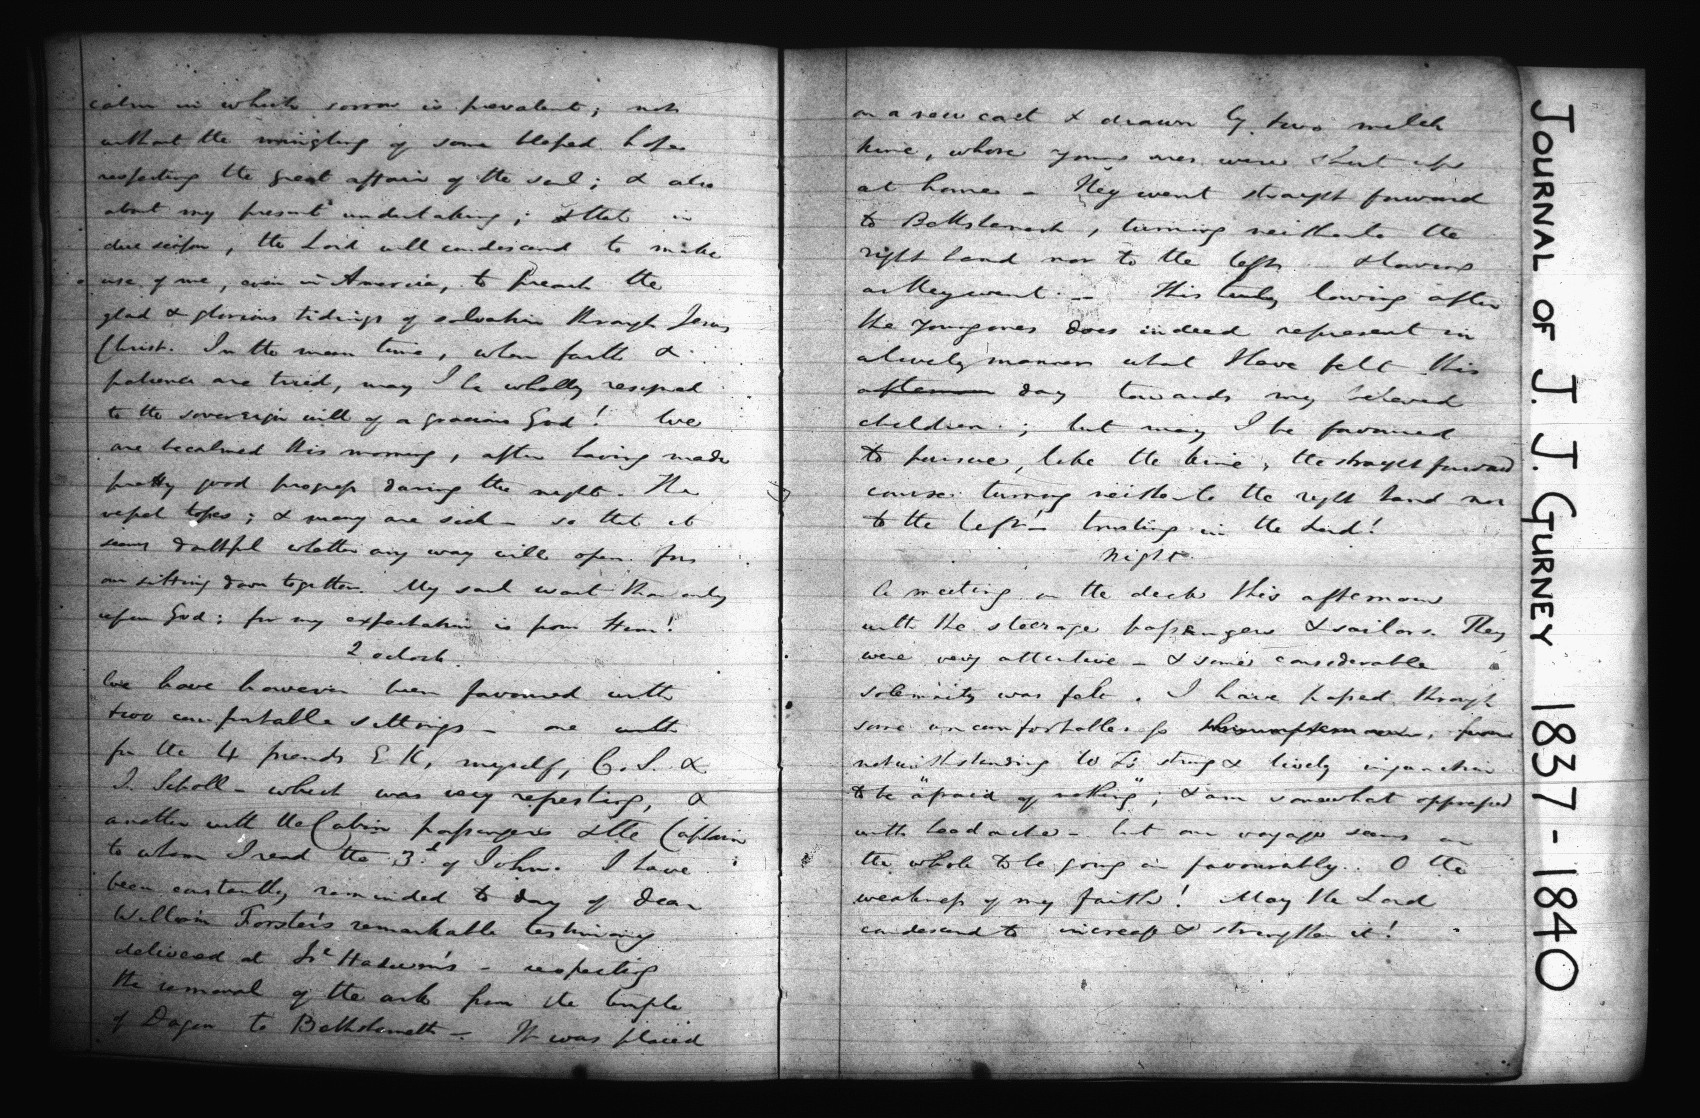 calm in which sorrow is prevalent; not
without the mingling of some blessed hope
respecting the great affair of the soul; & also
about my present undertaking; & that in
due season, the Lord will condescend to make
use of me, even in America, to preach the
glad & glorious tidings of salvation through Jesus
Christ. In the mean time, when faith &
patience are tried, may I be wholly resigned
to the sovereign will of a gracious God! We
are becalmed this morning, after having made
pretty good progress during the night. The
vessel tosses; & many are sick - so that it
seems doubtful whether any way will open for
our sitting down together. My soul wait thou only
upon God; for my expectation is from Him!
2 oclock.
We have however been favoured with
two comfortable sittings - one with
for the 4 friends E K, myself, C. S. &
J. Scholl - which was very refreshing, &
another with the Cabin passengers & the Captain
to whom I read the 3.d of John. I have
been constantly reminded to day of dear
William Forster's remarkable testimony
delivered at Is. Hadwen's - respecting
the removal of the ark from the temple
of Dagon to Bethshemeth - It was placed
on a new cart & drawn by two milch
kine, whose young ones were shut up
at home - They went straight forward
to Bethshemesh, turning neither to the
right hand nor to the left & lowing
as they went. - This lowing after
the young ones does indeed represent in
a lively manner what I have felt this
afternoon day towards my beloved
children; but may I be favoured
to pursue, like the kine, the straight forward
course turning neither to the right hand nor
to the left! - trusting in the Lord!
Night.
A meeting on the deck this afternoon
with the steerage passengers & sailors. They
were very attentive - & some considerable
solemnity was felt. I have passed through
some uncomfortableness
notwithstanding strong & lively injunction
to be "afraid of nothing"; & am somewhat oppressed
with headache - but our voyage seems on
the whole to be going on favourably. O the
weakness of my faith! May the Lord
condescend to increase & strengthen it!
JOURNAL OF J. J. GURNEY 1837-1840